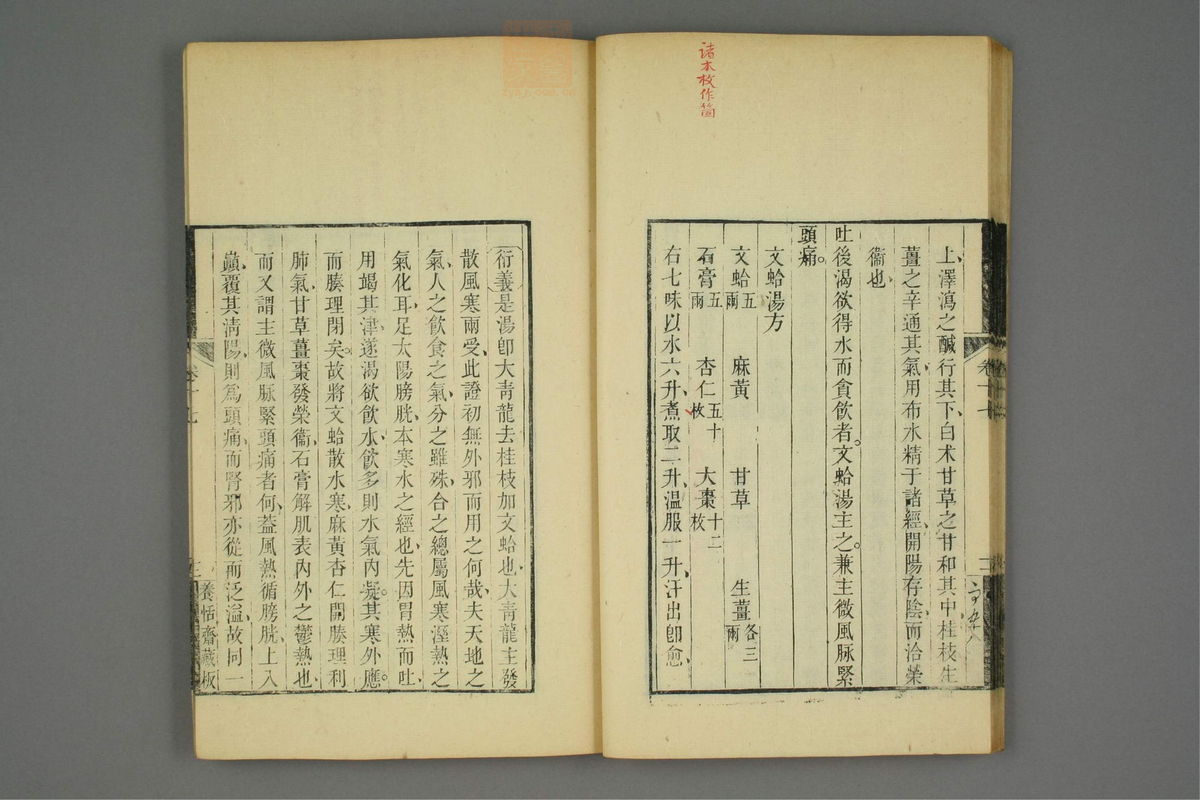 諸本枚作箇
上澤瀉之鹹行其下白术甘草之甘和其中桂枝生
薑之辛通其氣用布水精于諸經開陽存陰而洽榮
衞也
吐後渴欲得水而貪飮者文蛤湯主之兼主微風脉緊
頭痛。
文蛤湯方
文蛤五兩 麻黃 甘草 生薑各三兩
石膏五兩 杏仁五十枚 大棗十二枚
右七味以水六升煮取二升温服一升汗出卽愈
卷十七
衍義是湯卽大青龍去桂枝加文蛤也大青龍主發
散風寒兩受此證初無外邪而用之何哉夫天地之
氣人之飮食之氣分之雖殊合之總屬風寒溼熱之
氣化耳足太陽膀胱本寒水之經也先因胃熱而吐
用竭其津遂渴欲飮水飮多則水氣內凝其寒外應。
而腠理閉矣。故將文蛤散水寒麻黃杏仁開腠理利
肺氣甘草薑棗發榮衞石膏解肌表內外之鬱熱也
而又謂主微風脉緊頭痛者何葢風熱循膀胱上入
巔覆其淸陽則爲頭痛而腎邪亦從而泛溢故同一
卷十七
養恬齋藏板